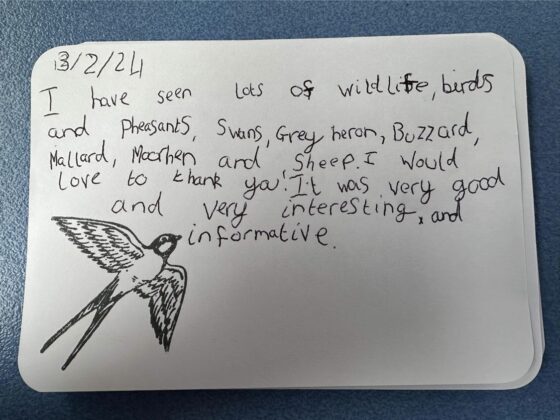 3/2/24
I have seen lots of wildlife, birds
and Pheasants, Swans, Grey heron, Buzzard,
Mallard, Moorhen and Sheep. I would
love to thank you! It was very good
and very interesting, and
informative.